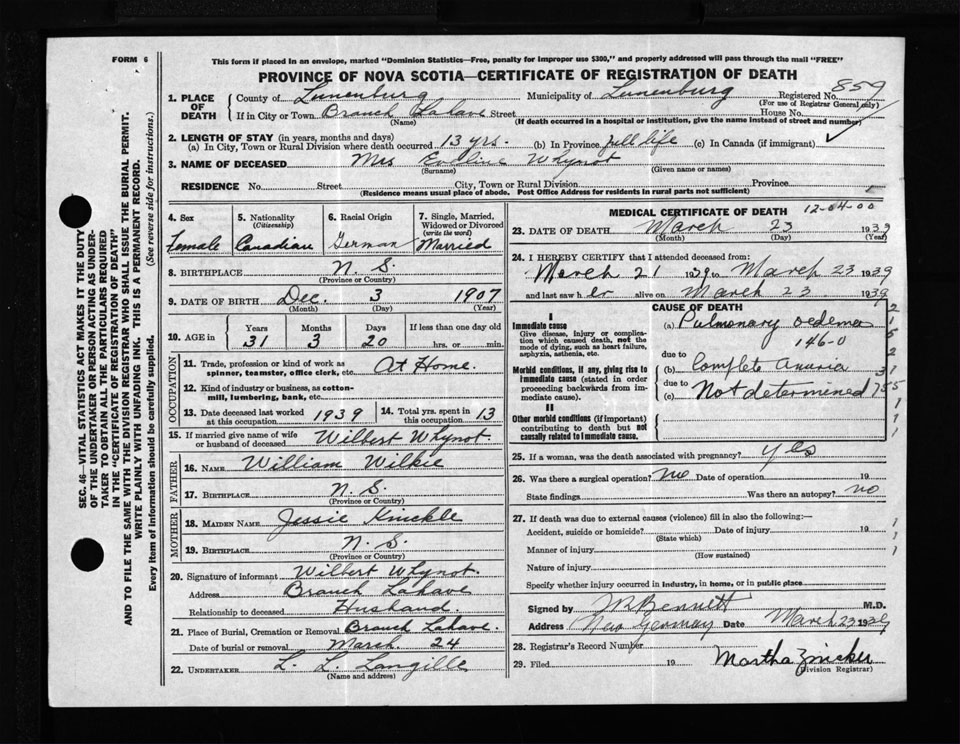 FORM 6
This form if placed in an envelope, marked "Dominion Statistics—Free, penalty for improper use $300," and properly addressed will pass through the mail "FREE"
PROVINCE OF NOVA SCOTIA—CERTIFICATE OF REGISTRATION OF DEATH
859
1. PLACE OF DEATH County of Lunenburg Municipality of Lunenburg Registered No.
(For use of Registrar General only)
If in City or Town Branch Lahave Street House No.
(Name) (If death occurred in a hospital or institution, give the name instead of street and number)
2. LENGTH OF STAY (in years, months and days)
(a) In City, Town or Rural Division where death occurred 13 yrs. (b) In Province full life (c) In Canada (if immigrant)
3. NAME OF DECEASED Mrs Eveline Whynot
(Surname) (Given name or names)
RESIDENCE No. Street City, Town or Rural Division Province
(Residence means usual place of abode. Post Office Address for residents in rural parts not sufficient)
4. Sex 5. Nationality (Citizenship) 6. Racial Origin 7. Single, Married, Widowed or Divorced (write the word)
Female Canadian German Married
8. BIRTHPLACE N. S.
(Province or Country)
9. DATE OF BIRTH Dec. 3 1907
(Month) (Day) (Year)
10. AGE in Years Months Days If less than one day old
31 3 20 hrs. or min.
OCCUPATION
11. Trade, profession or kind of work as spinner, teamster, office clerk, etc. At Home.
12. Kind of industry or business, as cotton-mill, lumbering, bank, etc.
13. Date deceased last worked at this occupation 1939 14. Total yrs. spent in this occupation 13
15. If married give name of wife or husband of deceased Wilbert Whynot.
FATHER
16. NAME William Wilkie
17. BIRTHPLACE N. S.
(Province or Country)
MOTHER
18. MAIDEN NAME Jessie Kinckle
19. BIRTHPLACE N. S.
(Province or Country)
20. Signature of informant Wilbert Whynot.
Address Branch Lahave
Relationship to deceased Husband.
21. Place of Burial, Cremation or Removal Branch Lahave.
Date of burial or removal March 24
22. UNDERTAKER L. L. Langille
(Name and address)
MEDICAL CERTIFICATE OF DEATH 12-04-00
23. DATE OF DEATH March 23 1939
(Month) (Day) (Year)
24. I HEREBY CERTIFY that I attended deceased from:
March 21 1939 to March 23 1939
and last saw her alive on March 23 1939
CAUSE OF DEATH
I
Immediate cause
Give disease, injury or complication which caused death, not the mode of dying, such as heart failure, asphyxia, asthenia, etc.
(a) Pulmonary oedema
146-0
due to
Morbid conditions, if any, giving rise to immediate cause (stated in order proceeding backwards from immediate cause).
(b) Complete Anuria
due to
(c) Not determined
II
Other morbid conditions (if important) contributing to death but not causally related to immediate cause.
25. If a woman, was the death associated with pregnancy? yes
26. Was there a surgical operation? no Date of operation 19
State findings Was there an autopsy? no
27. If death was due to external causes (violence) fill in also the following:—
Accident, suicide or homicide? Date of injury 19
(State which)
Manner of injury
(How sustained)
Nature of injury
Specify whether injury occurred in industry, in home, or in public place
Signed by Bennett M.D.
Address New Germany Date March 23 1939
28. Registrar's Record Number
29. Filed 19 Martha Zwicker
(Division Registrar)
SEC. 46—VITAL STATISTICS ACT MAKES IT THE DUTY
OF THE UNDERTAKER OR PERSON ACTING AS UNDER-
TAKER TO OBTAIN ALL THE PARTICULARS REQUIRED
IN THE "CERTIFICATE OF REGISTRATION OF DEATH"
AND TO FILE THE SAME WITH THE DIVISION REGISTRAR WHO SHALL ISSUE THE BURIAL PERMIT.
WRITE PLAINLY WITH UNFADING INK. THIS IS A PERMANENT RECORD.
Every item of information should be carefully supplied. (See reverse side for instructions.)